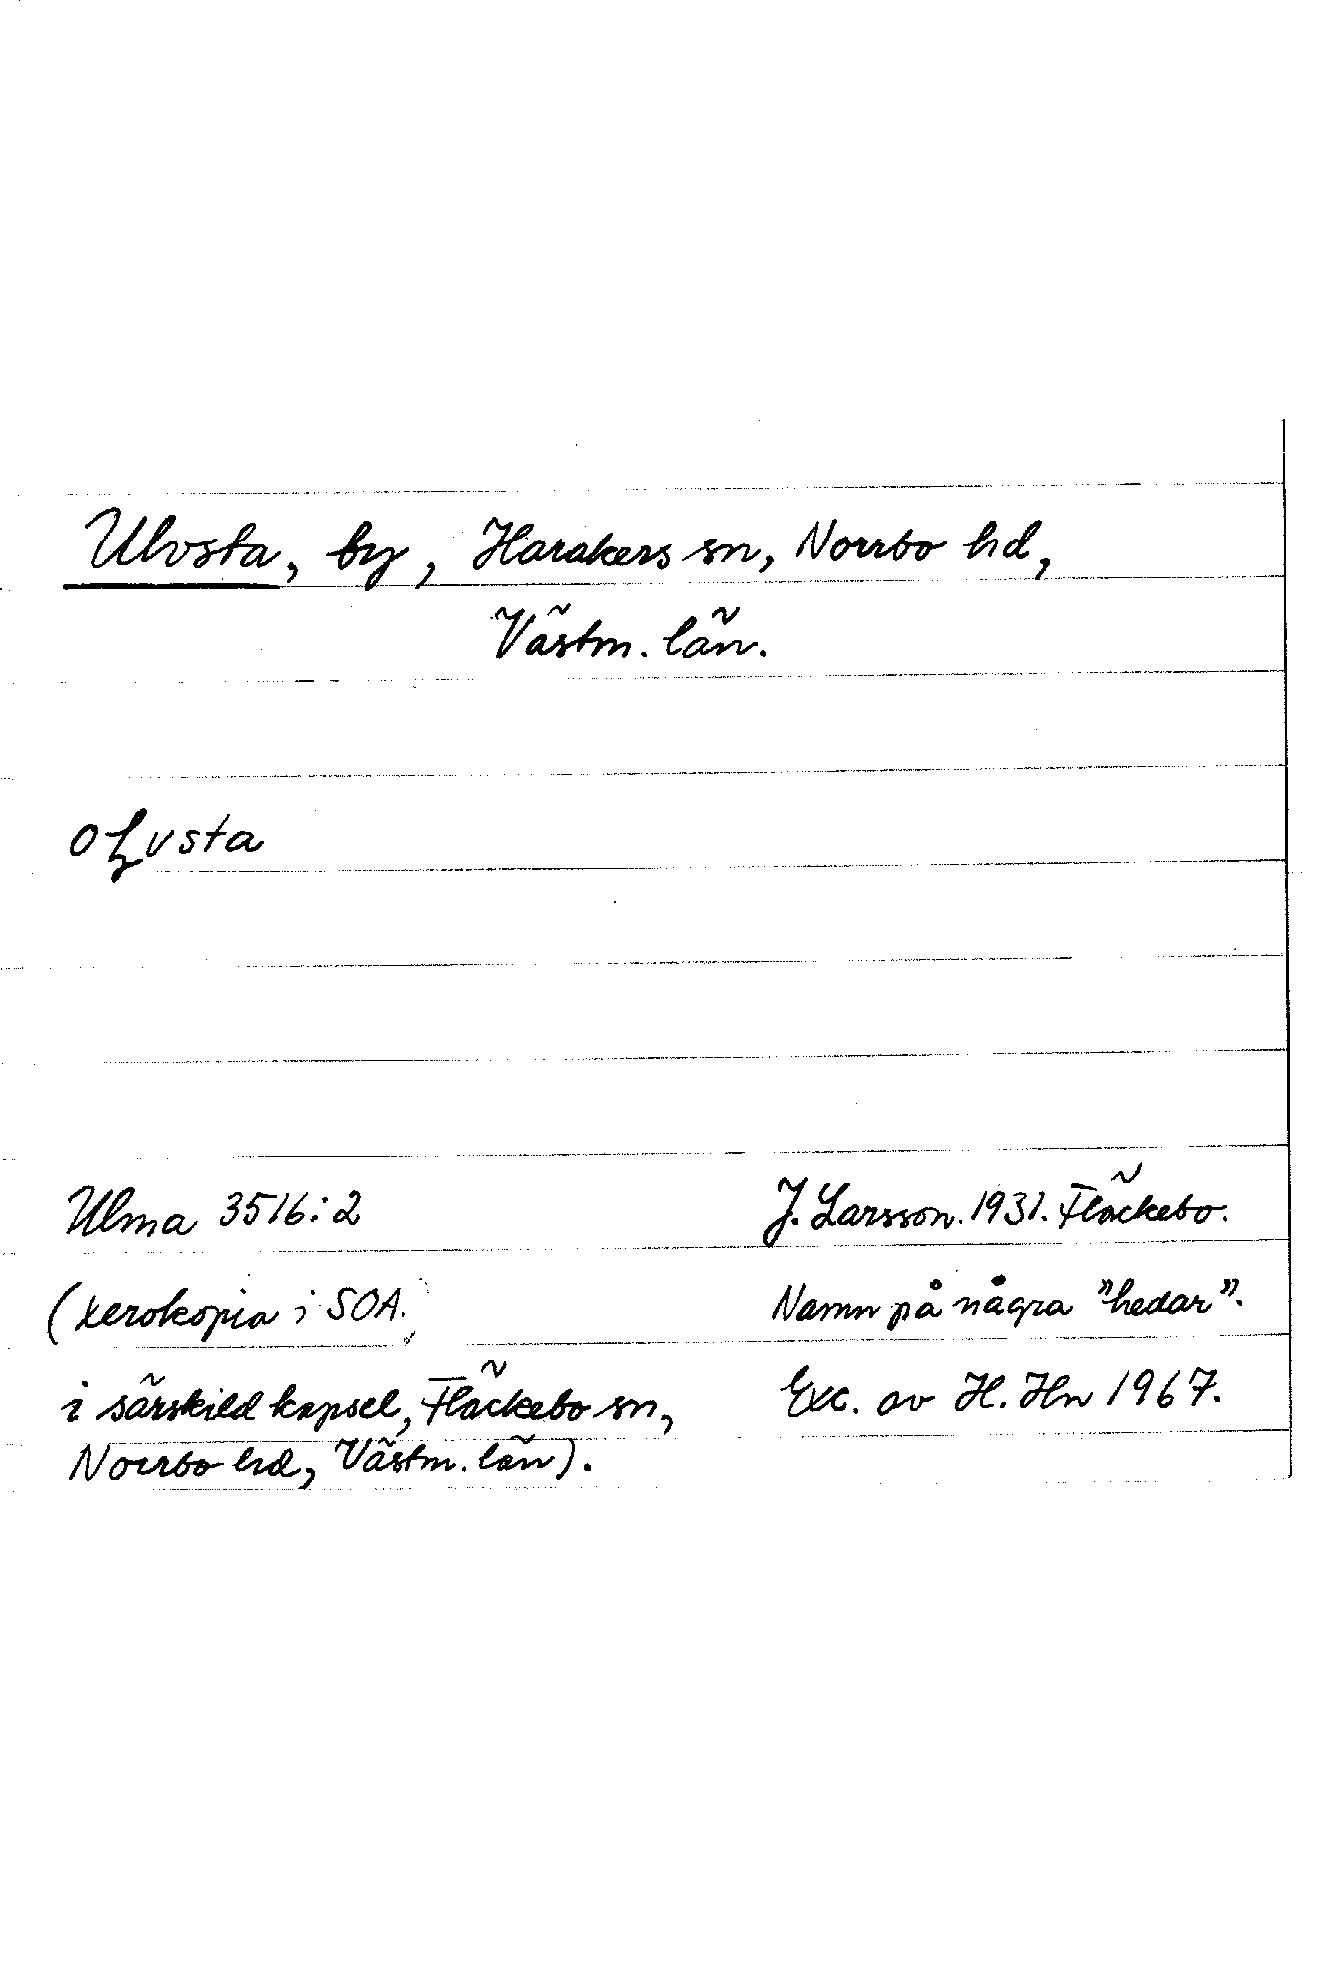 Ulvsta, by, Harakers sn, Norrbo hd,
Västm. län.
oȴvsta
Ulma 3516:2
(xerokopia i SOA.
i särskild kapsel, Fläckebo sn,
Norrbo hd, Västm. län).
J. Larsson. 1931. Fläckebo.
Namn på några "hedar".
Exc. av H. Hn 1967.